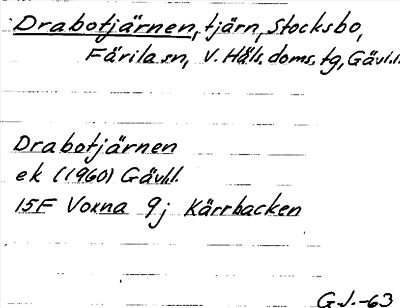 Drabotjärnen, tjärn, Stocksbo,
Färila sn, V. Häls. doms. tg, Gävl.l.
Drabotjärnen
ek (1960) Gävl.l.
15F Voxna 9j Kärrbacken
G.J.-63